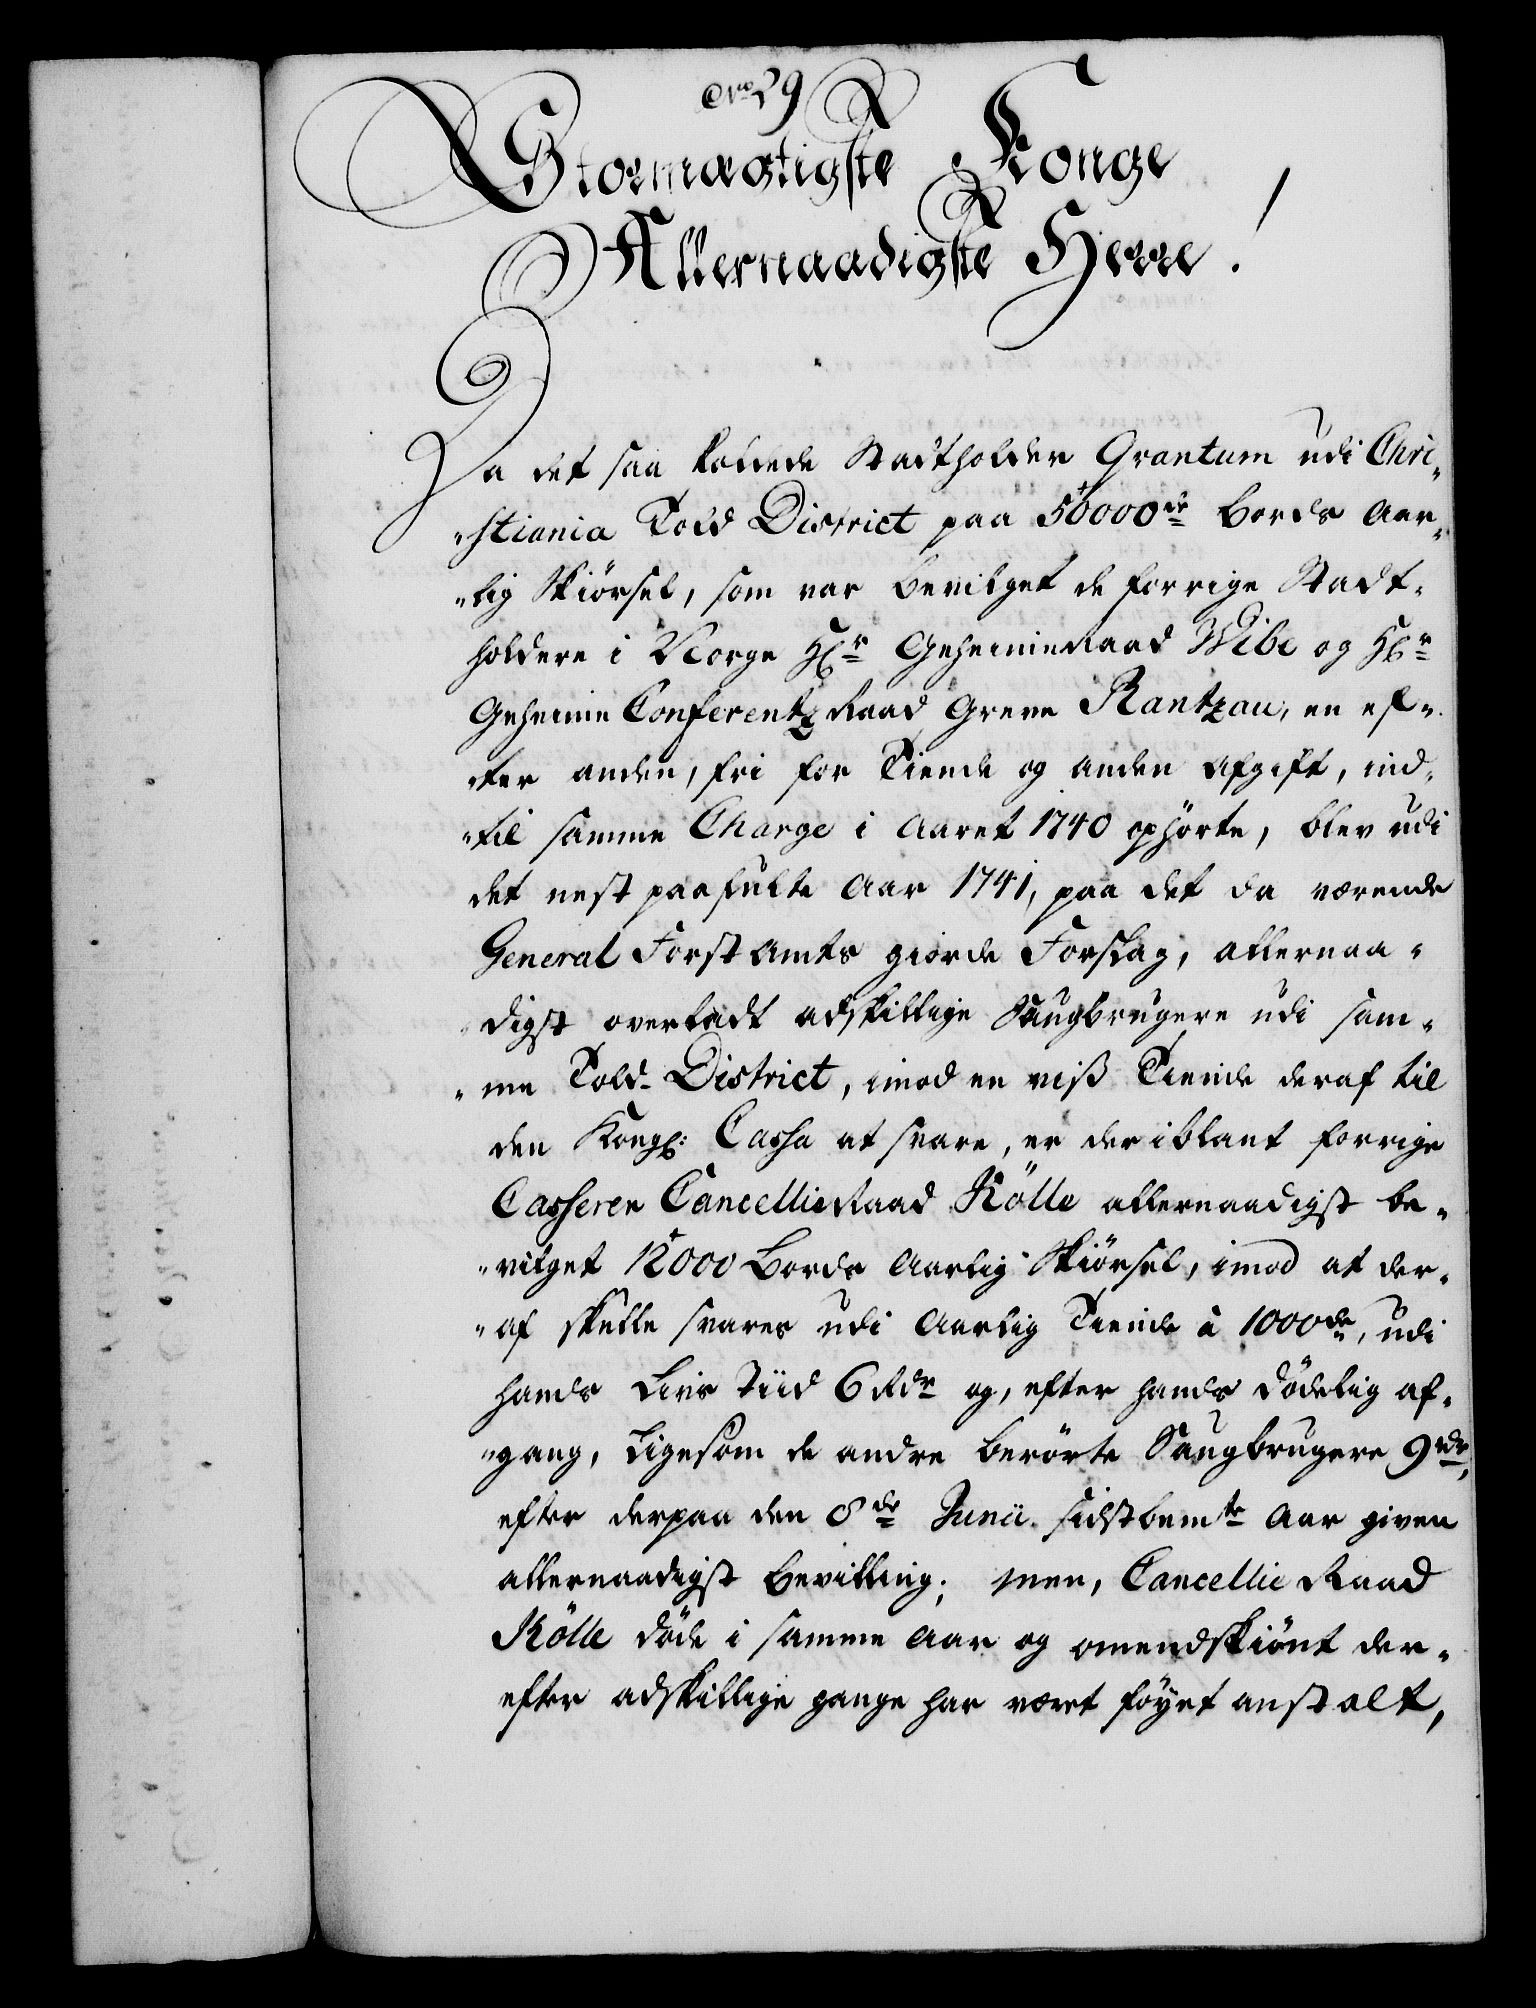 No. 29
Stormægtigste Konge
Allernaadigste Herre!
Da det saa kaldede Stadtholder Qvantum udi Chri„
„stiania Told District paa 50000de Bords Aar„
„lig Skiørsel, som var bevilget de forrige Stadt„
holdere i Norge Hr Geheimeraad Wibe og Hr
Geheime Conferentz Raad Greve Rantzau, en ef„
„ter anden, fri for Tiende og anden Afgift, ind„
„til samme Charge i Aaret 1740 ophörte, blev udi
det nest paafulte Aar 1741, paa det da værende
General Forst Amts giorde Forslag, allernaa„
„digst overladt adskillige Saugbrugere udi sam„
„me Told District, imod en viß Tiende deraf til
den Kongl: Cassa at svare, er der iblant forrige
Casserer Cancellie Raad Kölle allernaadigst be„
„vilget 12000 Bords Aarlig Skiørsel, imod at der„
„af skulle svares udi Aarlig Tiende à 1000de, udi
hands Livs Tiid 6 Rdr og, efter hands Dödelig af„
„gang, Ligesom de andre berörte Saugbrugere 9 rdr,
efter derpaa den 8de Junii sidstbemte Aar given
allernaadigst Bevilling; men, Cancellie Raad
Kölle döde i samme Aar og omendskiönt der„
efter adskillige gange har været föyet anstalt,